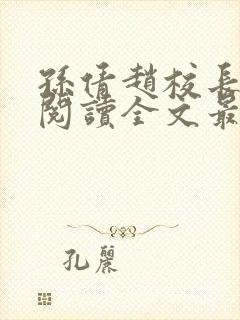 孫倩趙校長
閱讀全文最
孔麗